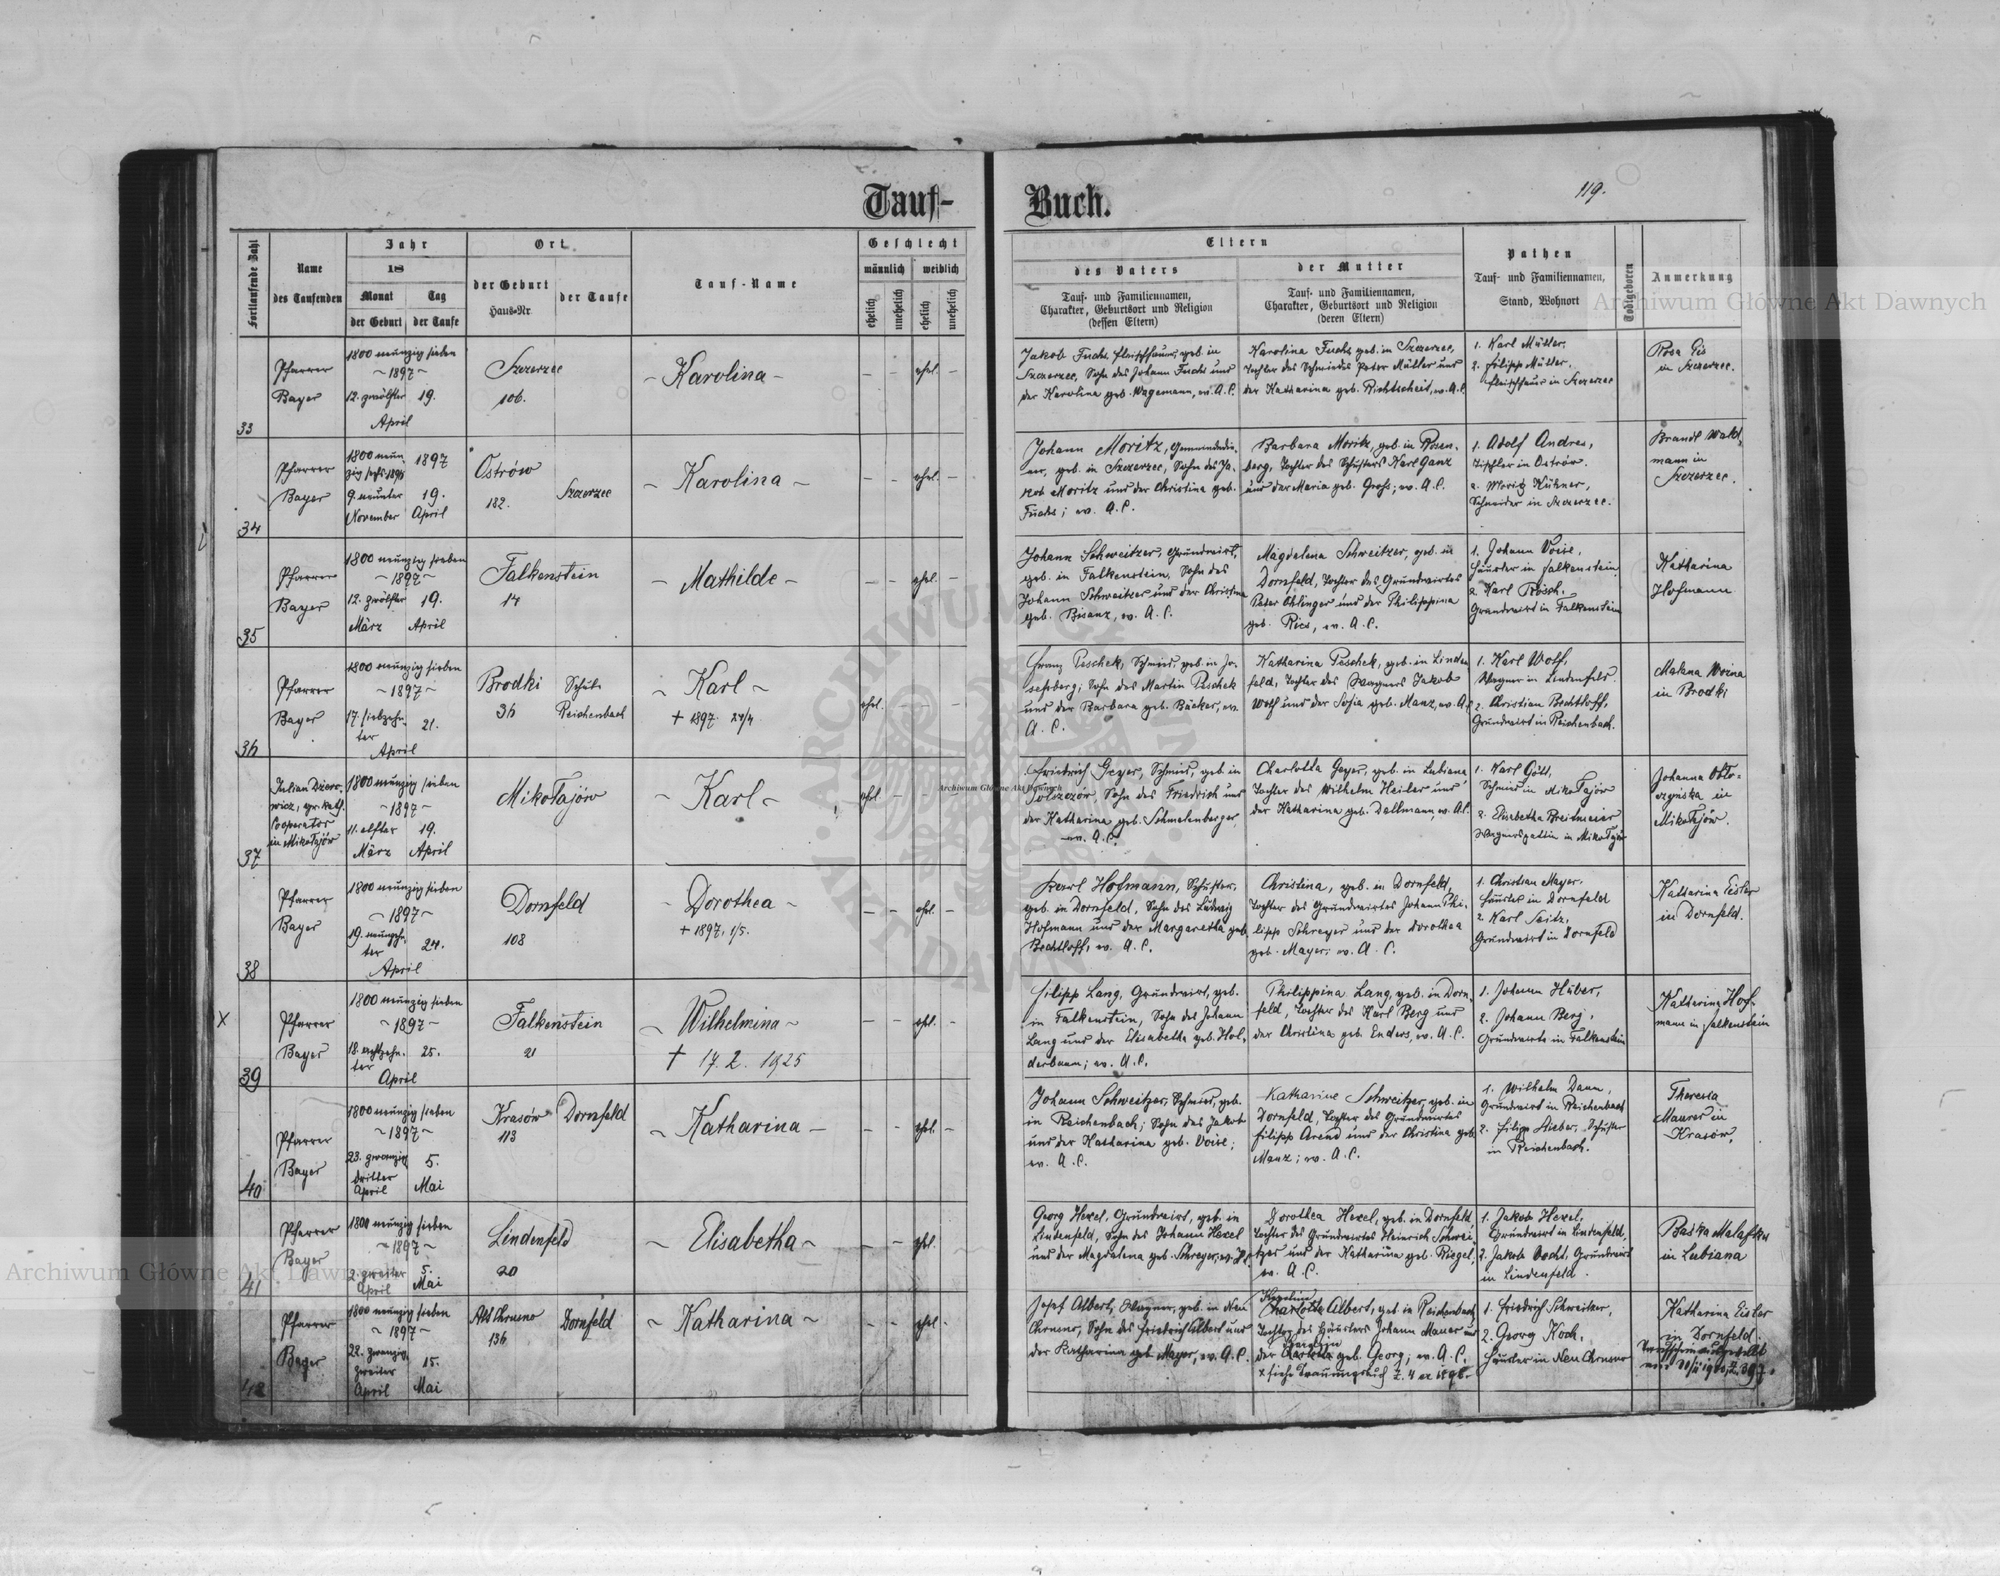 Tauf-
Buch.
119.
Fortlaufende Zahl
Name
des Taufenden
Jahr
18
Monat
Tag
der Geburt
der Taufe
Ort
der Geburt
Haus-Nr
der Taufe
Tauf-Name
Geschlecht
männlich
weiblich
ehelich
unehelich
ehelich
unehelich
Eltern
des Vaters
Tauf- und Familiennamen,
Charakter, Geburtsort und Religion
(dessen Eltern)
der Mutter
Tauf- und Familiennamen,
Charakter, Geburtsort und Religion
(deren Eltern)
Pathen
Tauf- und Familiennamen,
Stand, Wohnort
Todtgeboren
Anmerkung
33
Pfarrer
Bayer
1800 neunzig sieben
~ 1897 ~
12. zwölfter
19.
April
Szczerzec
106.
- Karolina -
- - ehel. -
Jakob Fuchs, Fleischhauer, geb. in
Szczerzec, Sohn des Johann Fuchs und
der Karolina geb. Wagemann, ev. A. C.
Karolina Fuchs, geb. in Szczerzec,
Tochter des Schmiedes Peter Müller und
der Katharina geb. Richtscheit, ev. A. C.
1. Karl Müller,
2. Filipp Müller,
Fleischhauer in Szczerzec
Rosa Eis
in Szczerzec.
34
Pfarrer
Bayer
1800 neun-
zig sechs 1896
1897
9. neunter
November
19.
April
Ostrów
182.
Szczerzec
- Karolina -
- - ehel. -
Johann Moritz, Gemeindedie-
ner, geb. in Szczerzec, Sohn des Ja-
kob Moritz und der Christina geb.
Fuchs; ev. A. C.
Barbara Moritz, geb. in Rosen-
berg, Tochter des Schusters Karl Ganz
und der Maria geb. Groß; ev. A. C.
1. Adolf Andres,
Tischler in Ostrów.
2. Moritz Kühner,
Schneider in Szczerzec.
Brandl Wald-
mann in
Szczerzec.
35
Pfarrer
Bayer
1800 neunzig sieben
~ 1897 ~
12. zwölfter
März
19.
April
Falkenstein
14
- Mathilde -
- - ehel. -
Johann Schweitzer, Grundwirt,
geb. in Falkenstein, Sohn des
Johann Schweitzer und der Christina
geb. Bisanz, ev. A. C.
Magdalena Schweitzer, geb. in
Dornfeld, Tochter des Grundwirtes
Peter Ohlinger und der Philippina
geb. Ries, ev. A. C.
1. Johann Voise,
Häusler in Falkenstein.
2. Karl Trösch,
Grundwirt in Falkenstein
Katharina
Hofmann
36
Pfarrer
Bayer
1800 neunzig sieben
~ 1897 ~
17. siebzehn-
ter
21.
April
Brodki
36
Schule
Reichenbach
~ Karl ~
+ 1897 24/4
ehel. - - -
Franz Peschek, Schmied, geb. in Jo-
sefsberg; Sohn des Martin Peschek
und der Barbara geb. Bäcker, ev.
A. C.
Katharina Peschek, geb. in Linden
feld, Tochter des Wagners Jakob
Wolf und der Sofia geb. Manz, ev. A. C.
1. Karl Wolf,
Wagner in Lindenfeld.
2. Christian Bechtloff,
Grundwirt in Reichenbach.
in Brodki
37
in Mikołajów
Cooperator
1800 neunzig sieben
~ 1897 ~
11. elfter
März
19.
April
Mikołajów
- Karl -
ehel. - - -
Friedrich Geyer, Schmied, geb. in
Sohn des Friedrich und
der Katharina geb. Schmelenberger,
ev. A. C.
Charlotta Geyer, geb. in Lubiana,
Tochter des Wilhelm Heiler und
der Katharina geb. Dallmann, ev. A. C.
1. Karl Göll,
Schmied in Mikołajów
2. Elisabetha Breitmeier
Wagnersgattin in Mikołajów
Johanna
in
Mikołajów.
38
Pfarrer
Bayer
1800 neunzig sieben
~ 1897 ~
19. neunzehn-
ter
24.
April
Dornfeld
108
- Dorothea -
+ 1897, 1/5.
- - ehel. -
Karl Hofmann, Schuster,
geb. in Dornfeld, Sohn des Ludwig
Hofmann und der Margaretha geb.
Bechtloff, ev. A. C.
Christina, geb. in Dornfeld,
Tochter des Grundwirtes Johann Phi-
lipp Schreyer und der Dorothea
geb. Mayer; ev. A. C.
1. Christian Mayer,
Häusler in Dornfeld
2. Karl Seitz,
Grundwirt in Dornfeld
Katharina Eisler
in Dornfeld.
X
39
Pfarrer
Bayer
1800 neunzig sieben
~ 1897 ~
18. achtzehn-
ter
25.
April
Falkenstein
21
~ Wilhelmina ~
+ 17. 2. 1925
- - ehel. -
Filipp Lang, Grundwirt, geb.
in Falkenstein, Sohn des Johann
Lang und der Elisabetha geb. Hol-
derbaum; ev. A. C.
Philippina Lang, geb. in Dorn-
feld, Tochter des Karl Berg und
der Christina geb. Enders, ev. A. C.
1. Johann Huber,
2. Johann Berg,
Grundwirte in Falkenstein
Katharina Hof-
mann in Falkenstein
40
Pfarrer
Bayer
1800 neunzig sieben
~ 1897 ~
23. zwanzig
dritter
April
5.
Mai
Krasów
113
Dornfeld
~ Katharina -
- - ehel. -
Johann Schweitzer, Schmied, geb.
in Reichenbach; Sohn des Jakob
und der Katharina geb. Voise;
ev. A. C.
Katharine Schweitzer, geb. in
Dornfeld, Tochter des Grundwirtes
Filipp Arend und der Christina geb.
Manz; ev. A. C.
1. Wilhelm Daum,
Grundwirt in Reichenbach
2. Filipp Stieber, Schuster
in Reichenbach.
Theresia
Maurer in
Krasów.
41
Pfarrer
Bayer
1800 neunzig sieben
~ 1897 ~
2. zweiter
April
5.
Mai
Lindenfeld
20
~ Elisabetha ~
- - ehel. -
Georg Hexel, Grundwirt, geb. in
Lindenfeld, Sohn des Johann Hexel
und der Magdalena geb. Schreyer, ev. A. C.
Dorothea Hexel, geb. in Dornfeld,
Tochter des Grundwirtes Heinrich Schwei-
tzer und der Katharina geb. Riegel,
ev. A. C.
1. Jakob Hexel,
Grundwirt in Lindenfeld,
2. Jakob Vocht, Grundwirt
in Lindenfeld.
in Lubiana
42
Pfarrer
Bayer
1800 neunzig sieben
~ 1897 ~
22. zwanzig
zweiter
April
15.
Mai
Alt Chrusno
136
Dornfeld
~ Katharina ~
- - ehel. -
Josef Albert, Wagner, geb. in Neu
Chrusno, Sohn des Friedrich Albert und
der Katharina geb. Mayer, ev. A. C.
Charlotte Albert, geb. in Reichenbach,
Tochter des Häuslers Johann Mauer und
der geb. Georg; ev. A. C.
x siehe Trauungsbuch Z. 4 ex 1896.
1. Friedrich Schweitzer,
2. Georg Koch,
Häusler in Neu Chrusno
Katharina Eisler
in Dornfeld.
Archiwum Główne Akt Dawnych
Archiwum Główne Akt Dawnych
Archiwum Główne Akt Dawnych
ARCHIWUM GŁÓWNE AKT DAWNYCH